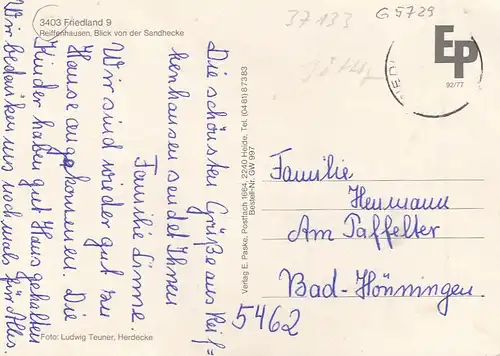 3403 Friedland 9
Reiffenhausen, Blick von der Sandhecke
Die schönsten Grüße aus Reif=
henhausen sendet Ihnen
Familie Linne.
Wir sind wieder gut zu
Hause angekommen. Die
Kinder haben gut Haus gehalten
Wir bedanken uns nochmals für Alles.
Foto: Ludwig Teuner, Herdecke
Verlag E. Paske, Postfach 1664, 2240 Heide, Tel. (0481) 87383
Bestell-Nr. GW 997
37133
G 5729
EP
92/77
Familie
Heumann
Am Paffelter
Bad-Hönningen.
5462